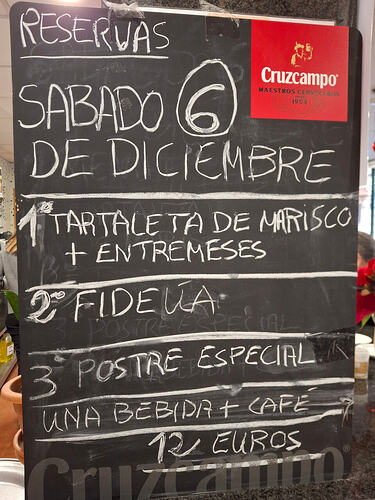 RESERVAS
Cruzcampo
MAESTROS CERVECEROS
1904
SABADO 6
DE DICIEMBRE
1º TARTALETA DE MARISCO
+ ENTREMESES
2º FIDEUA
3 POSTRE ESPECIAL
UNA BEBIDA + CAFÉ
12 EUROS
Cruzcampo